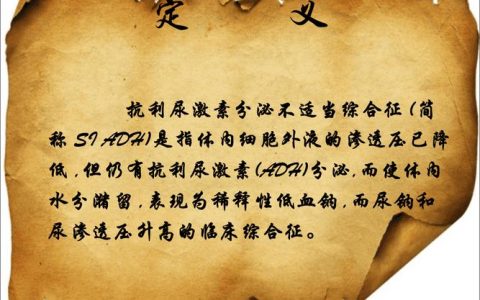 定 义
抗利尿激素分泌不适当综合征(简
称SIADH)是指体内细胞外液的渗透压已降
低,但仍有抗利尿激素(ADH)分泌,而使体内
水分潴留,表现为稀释性低血钠,而尿钠和
尿渗透压升高的临床综合征。